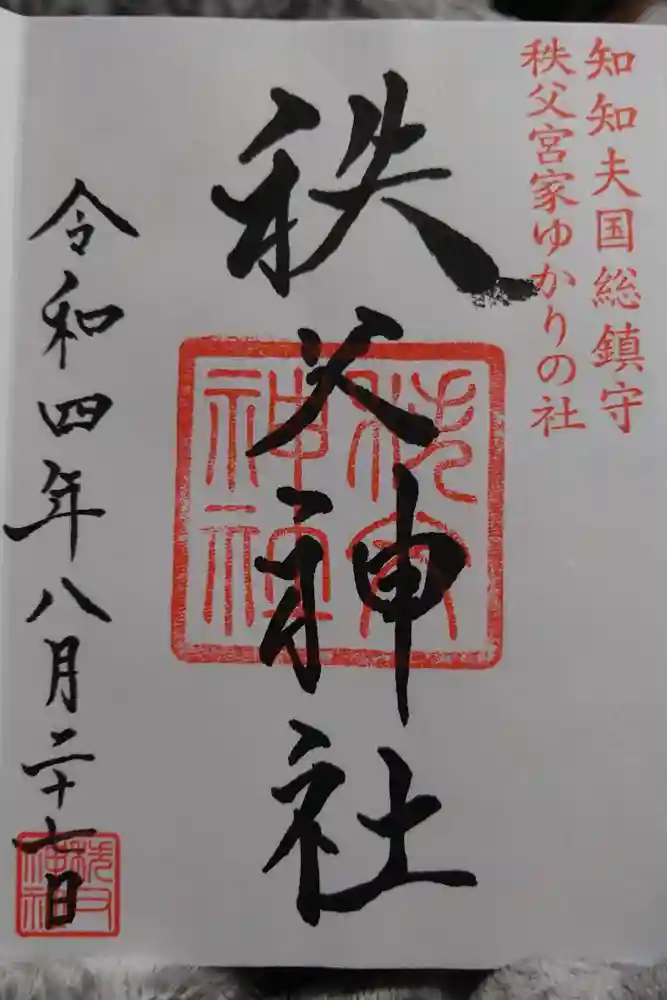 知知夫国総鎮守
秩父宮家ゆかりの社
秩父神社
秩父神社
令和四年八月二十七日
秩父神社